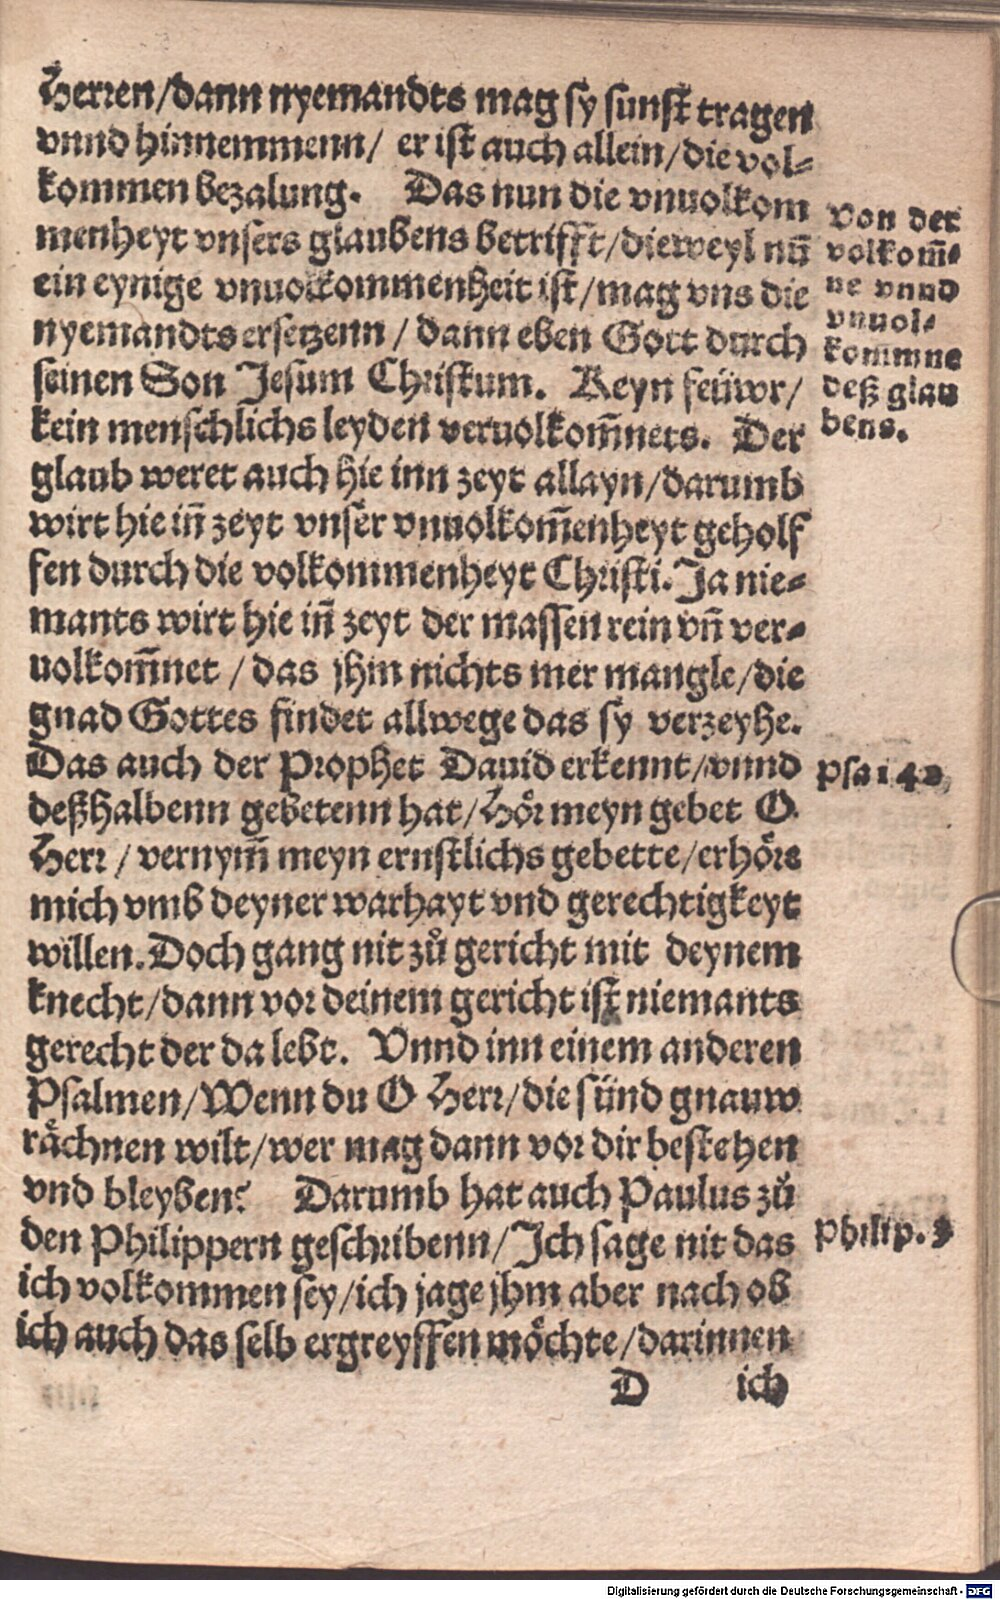 Herren/dann nyemandts mag sy sunst tragen
vnnd hinnemmenn/ er ist auch allein/die vol⸗
kommen bezalung. Das nun die vnuolkom
menheyt vnsers glaubens betrifft/dieweyl nū
ein eynige vnuolkommenheit ist/mag vns die
nyemandts ersetzenn / dann eben Gott durch
seinen Son Jesum Christum. Keyn feüwr/
kein menschlichs leyden veruolkom̄nets. Der
glaub weret auch hie inn zeyt allayn/darumb
wirt hie in̄ zeyt vnser vnuolkom̄enheyt geholf
fen durch die volkommenheyt Christi. Ja nie⸗
mants wirt hie in̄ zeyt der massen rein vn̄ ver⸗
uolkom̄net / das jhm nichts mer mangle/die
gnad Gottes findet allwege das sy verzeyhe.
Das auch der Prophet Dauid erkennt/vnnd
deßhalbenn gebetenn hat/Hör meyn gebet O
Herr / vernym̄ meyn ernstlichs gebette/erhöre
mich vmb deyner warhayt vnd gerechtigkeyt
willen. Doch gang nit zů gericht mit deynem
knecht/dann vor deinem gericht ist niemants
gerecht der da lebt. Vnnd inn einem anderen
Psalmen/Wenn du O Herr/die sünd gnauw
rächnen wilt/wer mag dann vor dir bestehen
vnd bleyben? Darumb hat auch Paulus zů
den Philippern geschribenn/Ich sage nit das
ich volkommen sey/ich jage jhm aber nach ob
ich auch das selb ergreyffen möchte/darinnen
D ich
Von der
volkom̄⸗
ne vnnd
vnuol⸗
kommne
deß glau
bens.
Psa 142
Philip. 3
Digitalisierung gefördert durch die Deutsche Forschungsgemeinschaft - DFG